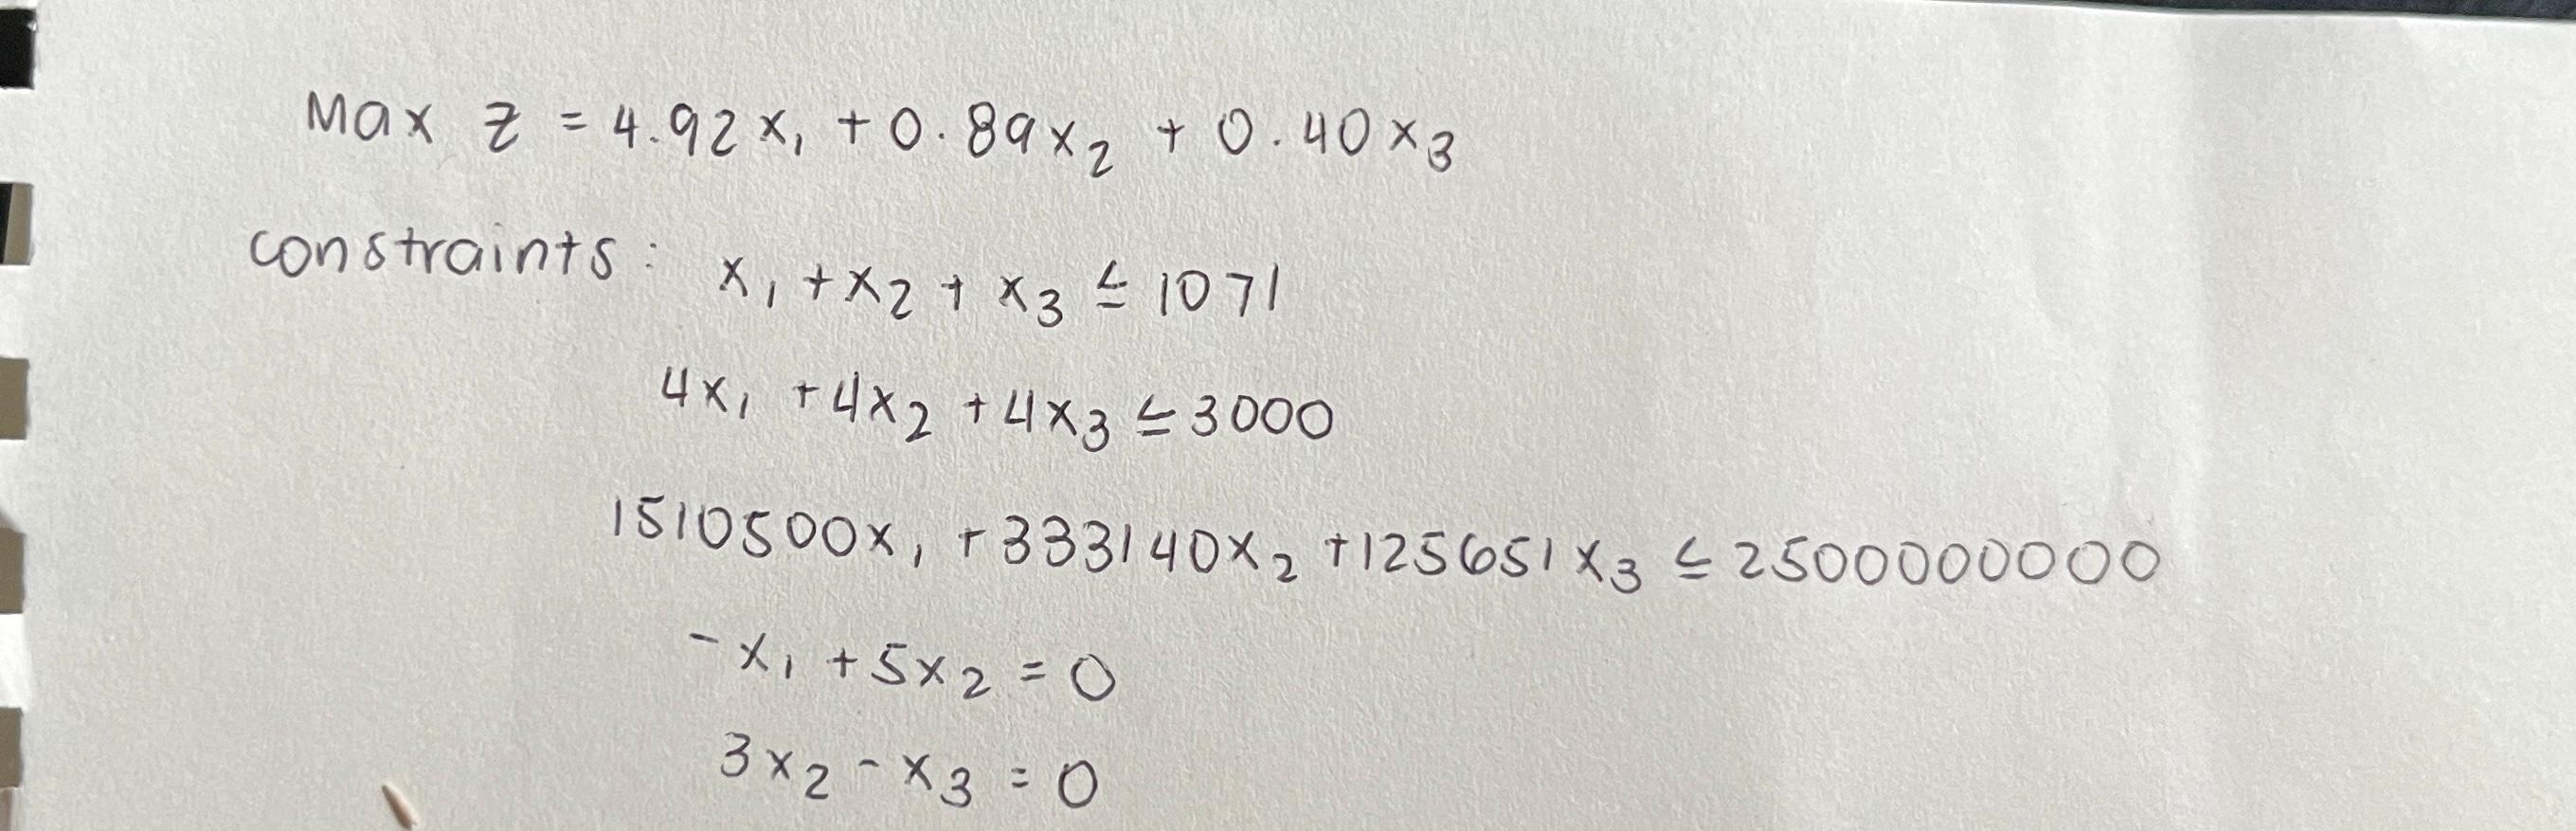 Max z = 4.92x₁ + 0.89x₂ + 0.40x₃
constraints: x₁ + x₂ + x₃ ≤ 1071
4x₁ + 4x₂ + 4x₃ ≤ 3000
1510500x₁ + 333140x₂ + 125651x₃ ≤ 2500000000
-x₁ + 5x₂ = 0
3x₂ - x₃ = 0